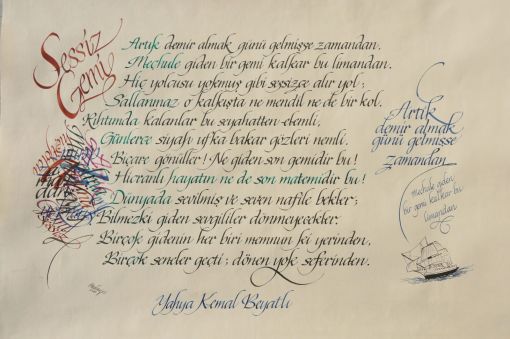 Sessiz
Gemi
Artık demir almak günü gelmişse zamandan,
Meçhule giden bir gemi kalkar bu limandan.
Hiç yolcusu yokmuş gibi sessizce alır yol;
Sallanmaz o kalkışta ne mendil ne de bir kol.
Rıhtımda kalanlar bu seyahatten elemli,
Günlerce siyah ufka bakar gözleri nemli.
Biçare gönüller! Ne giden son gemidir bu!
Hicranlı hayatın ne de son matemidir bu!
Dünyada sevilmiş ve seven nafile bekler;
Bilmezki giden sevgililer dönmeyecekler.
Birçok gidenin her biri memnun ki yerinden,
Birçok seneler geçti; dönen yok seferinden.
Yahya Kemal Beyatlı
Artık
demir almak
günü gelmişse
zamandan
meçhule giden
bir gemi kalkar bu
limandan